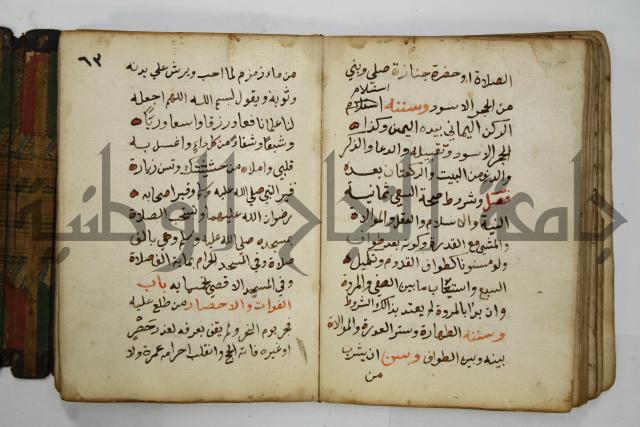 الصلاة او حضرة جنازة صلي ويبني
استلام
من الحجر الاسود وسننه استلام
الركن اليماني بيده اليمني وكذا
الحجر الاسود وتقبيله والدعا والذكر
والدنو من البيت والركعتان بعده
فصل وشروط صحة السعي ثمانية
النية والاسلام والعقل والموالاة
والمشي مع القدرة وكونه بعد طواف
ولو مسنونا كطواف القدوم وتكميل
السبع واستيعاب ما بين الصفي والمروة
وان بدا بالمروة لم يعتد بذلك الشوط
وسننه الطهارة وستر العورة والموالاة
بينه وبين الطواف وسن ان يشرب
من
٦٣
من ماء زمزم لما احب ويرش علي بدنه
وثوبه ويقول بسم الله اللهم اجعله
لنا علما نافعا ورزقا واسعا وريا
وشبعا وشفاء من كل داء واغسل به
قلبي واملاه من خشيتك وتسن زيارة
قبر النبي صلي الله عليه وسلم وقبر اصحابه
رضوان الله عليهما وتستحب الصلاة
بمسجده صلي الله عليه وسلم وهي بالف
صلاة وفي المسجد الحرام بماية الف صلاة
وفي المسجد الاقصي بخمسمايه باب
الفوات والاحصار من طلع عليه
فجر يوم النحر ولم يقف بعرفه لعذر حصر
او غيره فاته الحج وانقلب احرامه عمرة ولا
جامعة النجاح الوطنية